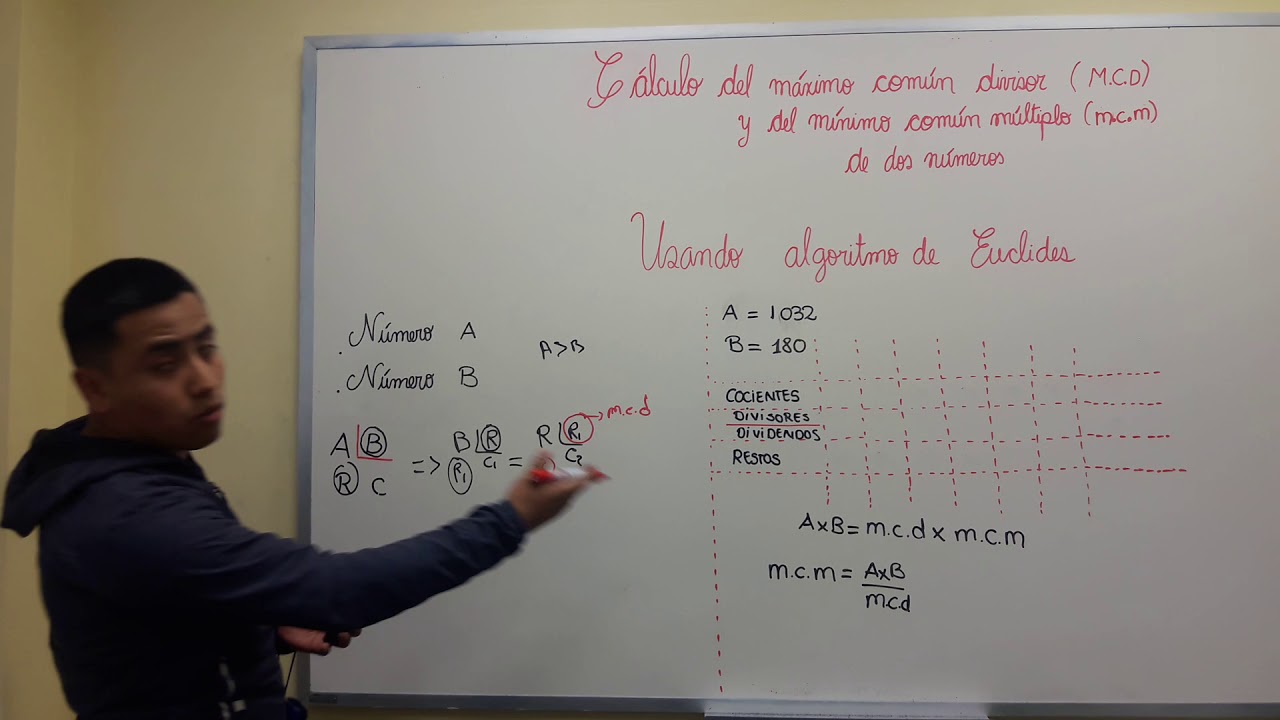 Cálculo del máximo común divisor (M.C.D)
y del mínimo común múltiplo (m.c.m)
de dos números
Usando algoritmo de Euclides
. Número A
A>B
. Número B
A B
R C
=>
B R
R₁ C₁
=
R R₁ → m.c.d
C₂
A = 1032
B = 180
COCIENTES
DIVISORES
DIVIDENDOS
RESTOS
AxB = m.c.d x m.c.m
m.c.m = AxB
m.c.d